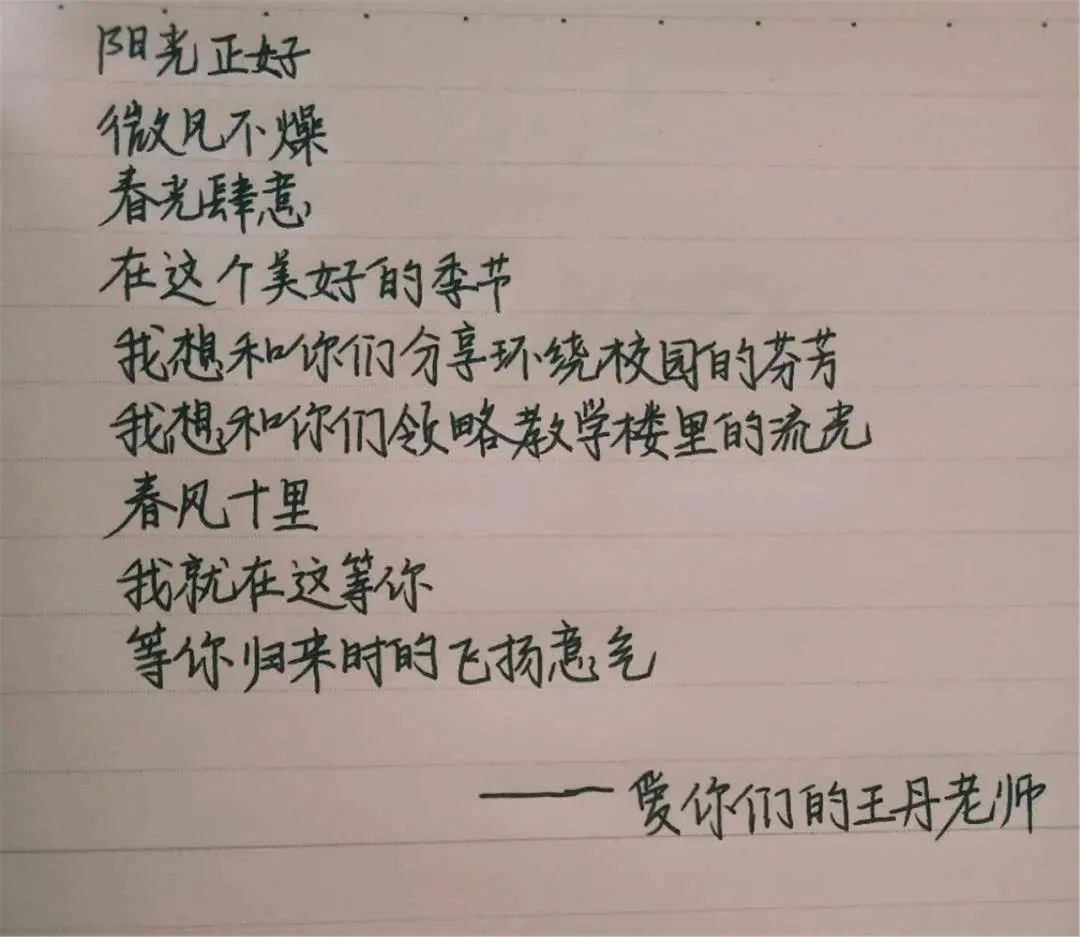 阳光正好
微风不燥
春光肆意
在这个美好的季节
我想和你们分享环绕校园的芬芳
我想和你们领略教学楼里的流光
春风十里
我就在这等你
等你归来时的飞扬意气
——爱你们的王丹老师